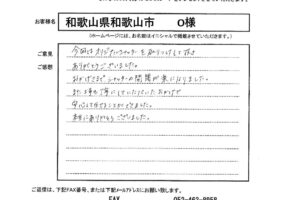 お客様名 和歌山県和歌山市 O様
(ホームページには、お名前はイニシャルで掲載させていただきます。)
ご意見
ご感想
今回はオリジナルシャッターを取りつけして頂き
ありがとうございました。
おかげさまでシャッターの開閉が楽になりました。
また工事も丁寧にしていただいたおかげで
安心して任せることができました。
本当にありがとうございました。
ご返信は、下記FAX番号、または下記メールアドレスにお願い致します。
FAX 052-462-8058